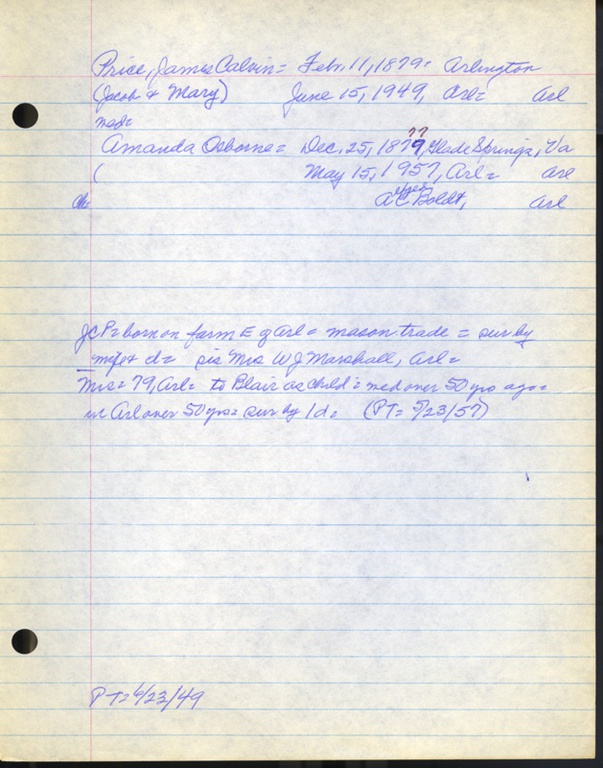 Price, James Calvin = Febr. 11, 1879: Arlington
(Jacob & Mary) June 15, 1949, Arl= Arl
med:
??
Amanda Osborne = Dec. 25, 1879, Glade Springs, Va
( May 15, 1957, Arl = Arl
Ch: A C Boldt, Arl
JCP = born on farm E of Arl = mason trade = sur by
wife & d = sis Mrs W J Marshall, Arl =
Mrs = 79, Arl = to Blair as child = med over 50 yrs ago =
in Arl over 50 yrs = sur by 1 d = (PT = 5/23/57)
PT = 6/23/49